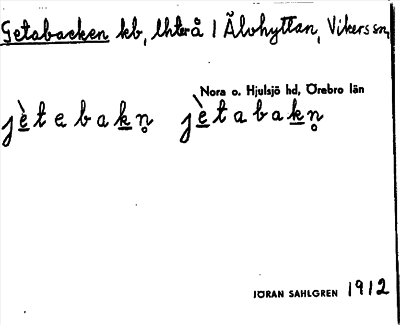 Getabacken kb, lhterå 1 Älvhyttan, Vikers sn,
Nora o. Hjulsjö hd, Örebro län
jètebakn̥ jètabakn̥
JÖRAN SAHLGREN 1912